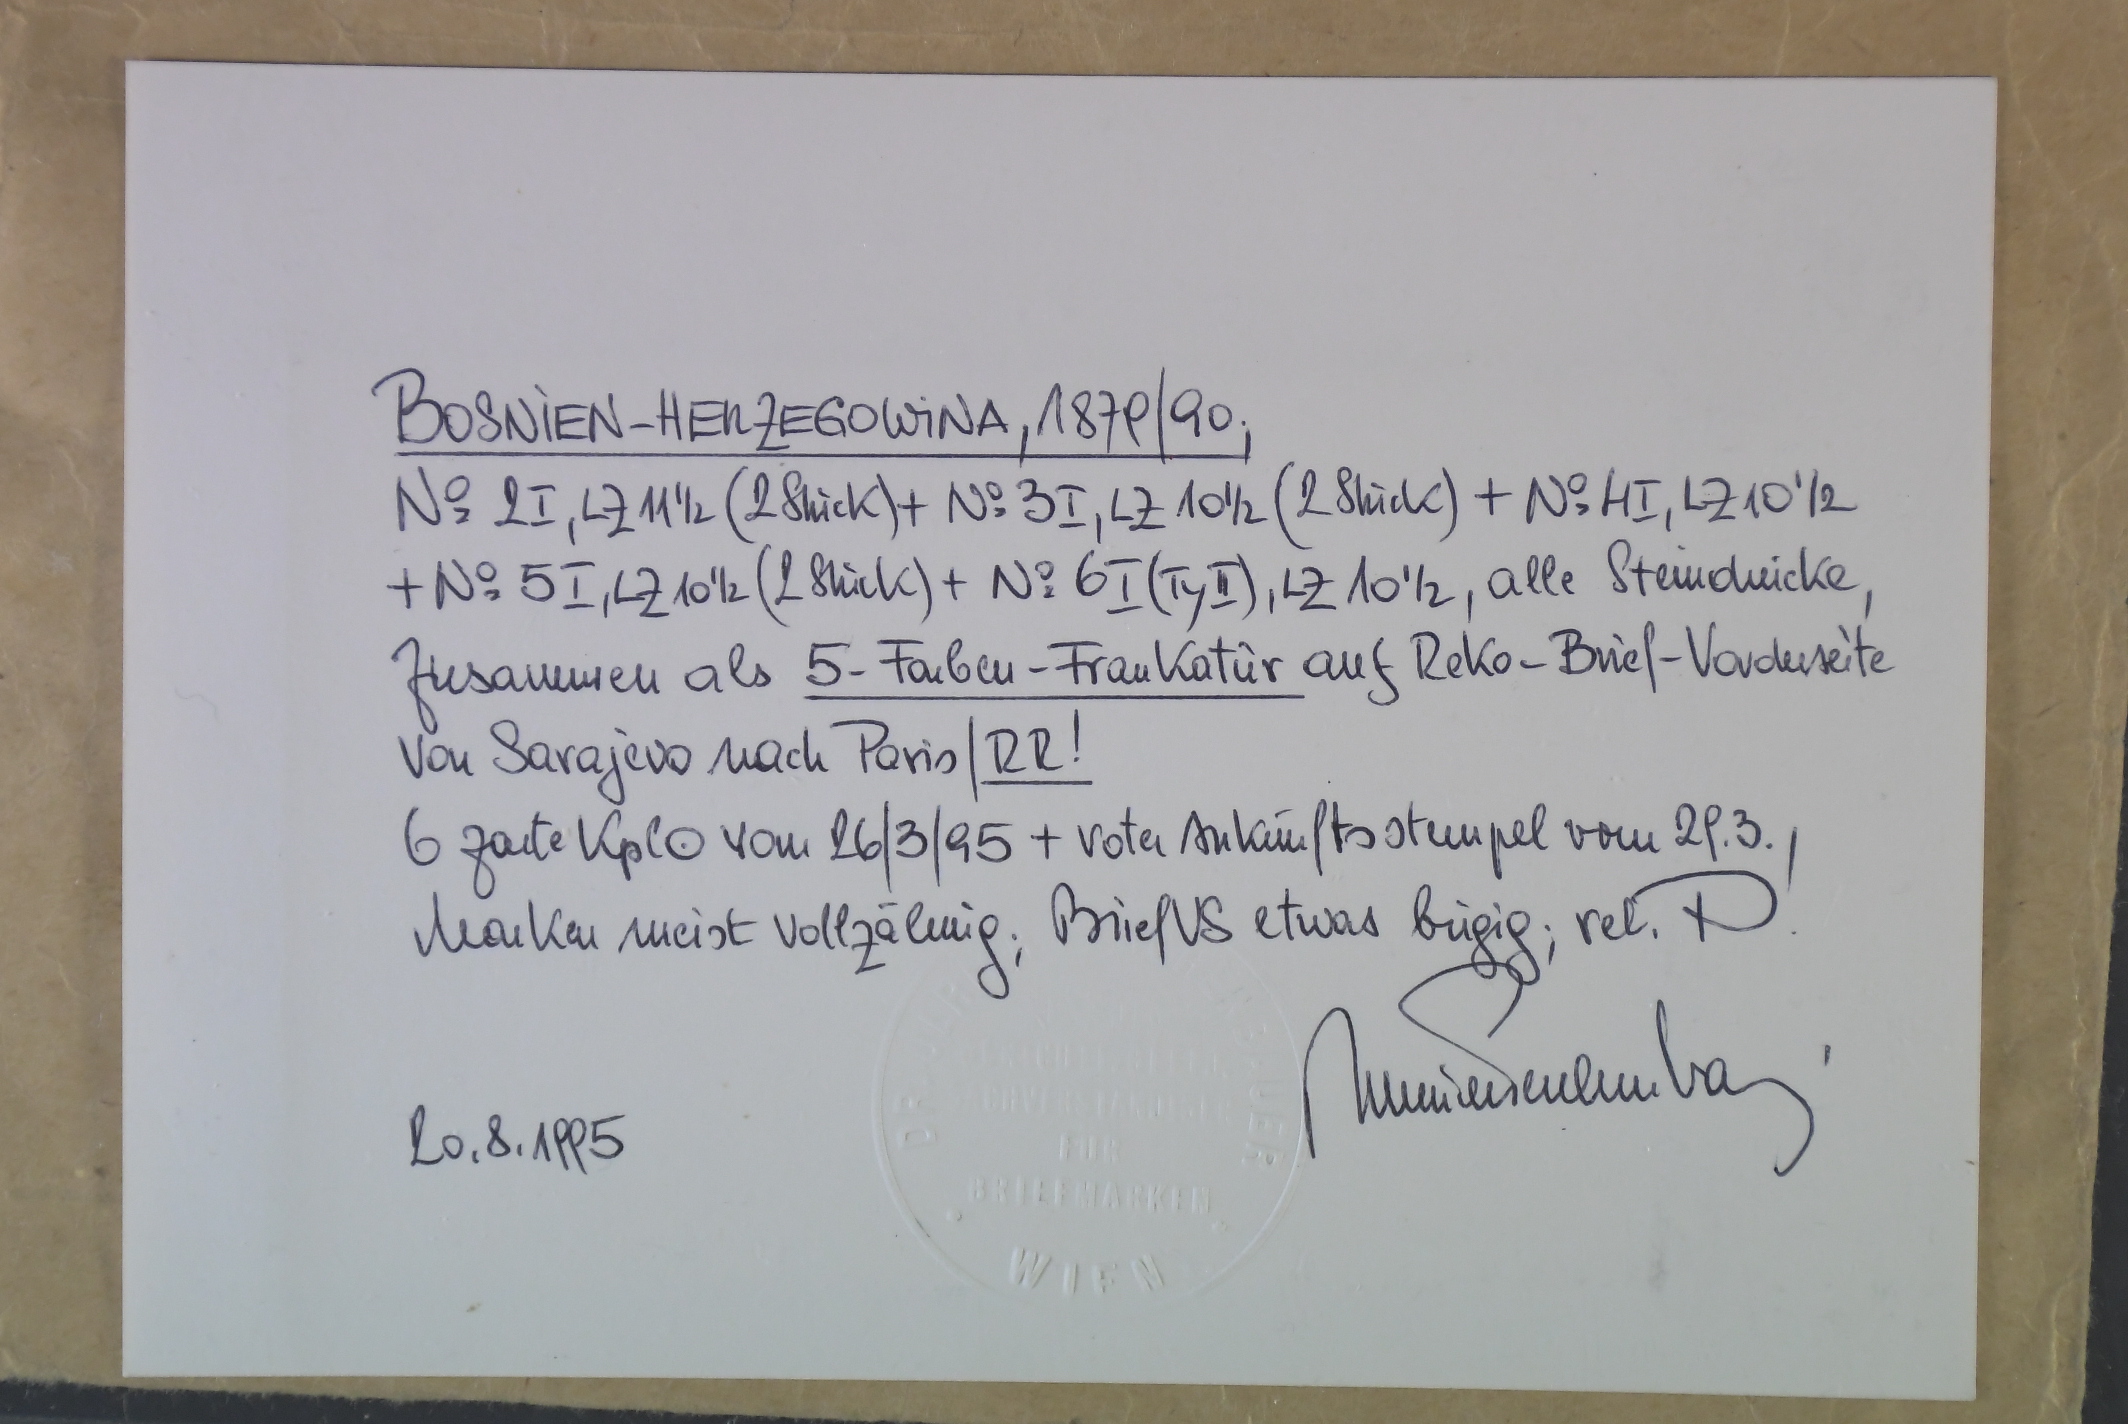 BOSNIEN-HERZEGOWINA, 1879/90;
No 2I, LZ 11 1/2 (2 Stück) + No 3I, LZ 10 1/2 (2 Stück) + No 4I, LZ 10 1/2
+ No 5I, LZ 10 1/2 (2 Stück) + No 6I (Ty II), LZ 10 1/2, alle Steindrucke,
zusammen als 5-Farben-Frankatur auf Reko-Brief-Vorderseite
von Sarajevo nach Paris / RR!
6 zarte KplO vom 26/3/95 + roter Ankunftsstempel vom 29.3.,
Marken meist vollzähnig; Brief VS etwas bügig; rel.
20.8.1995
FÜR
BRIEFMARKEN
WIEN